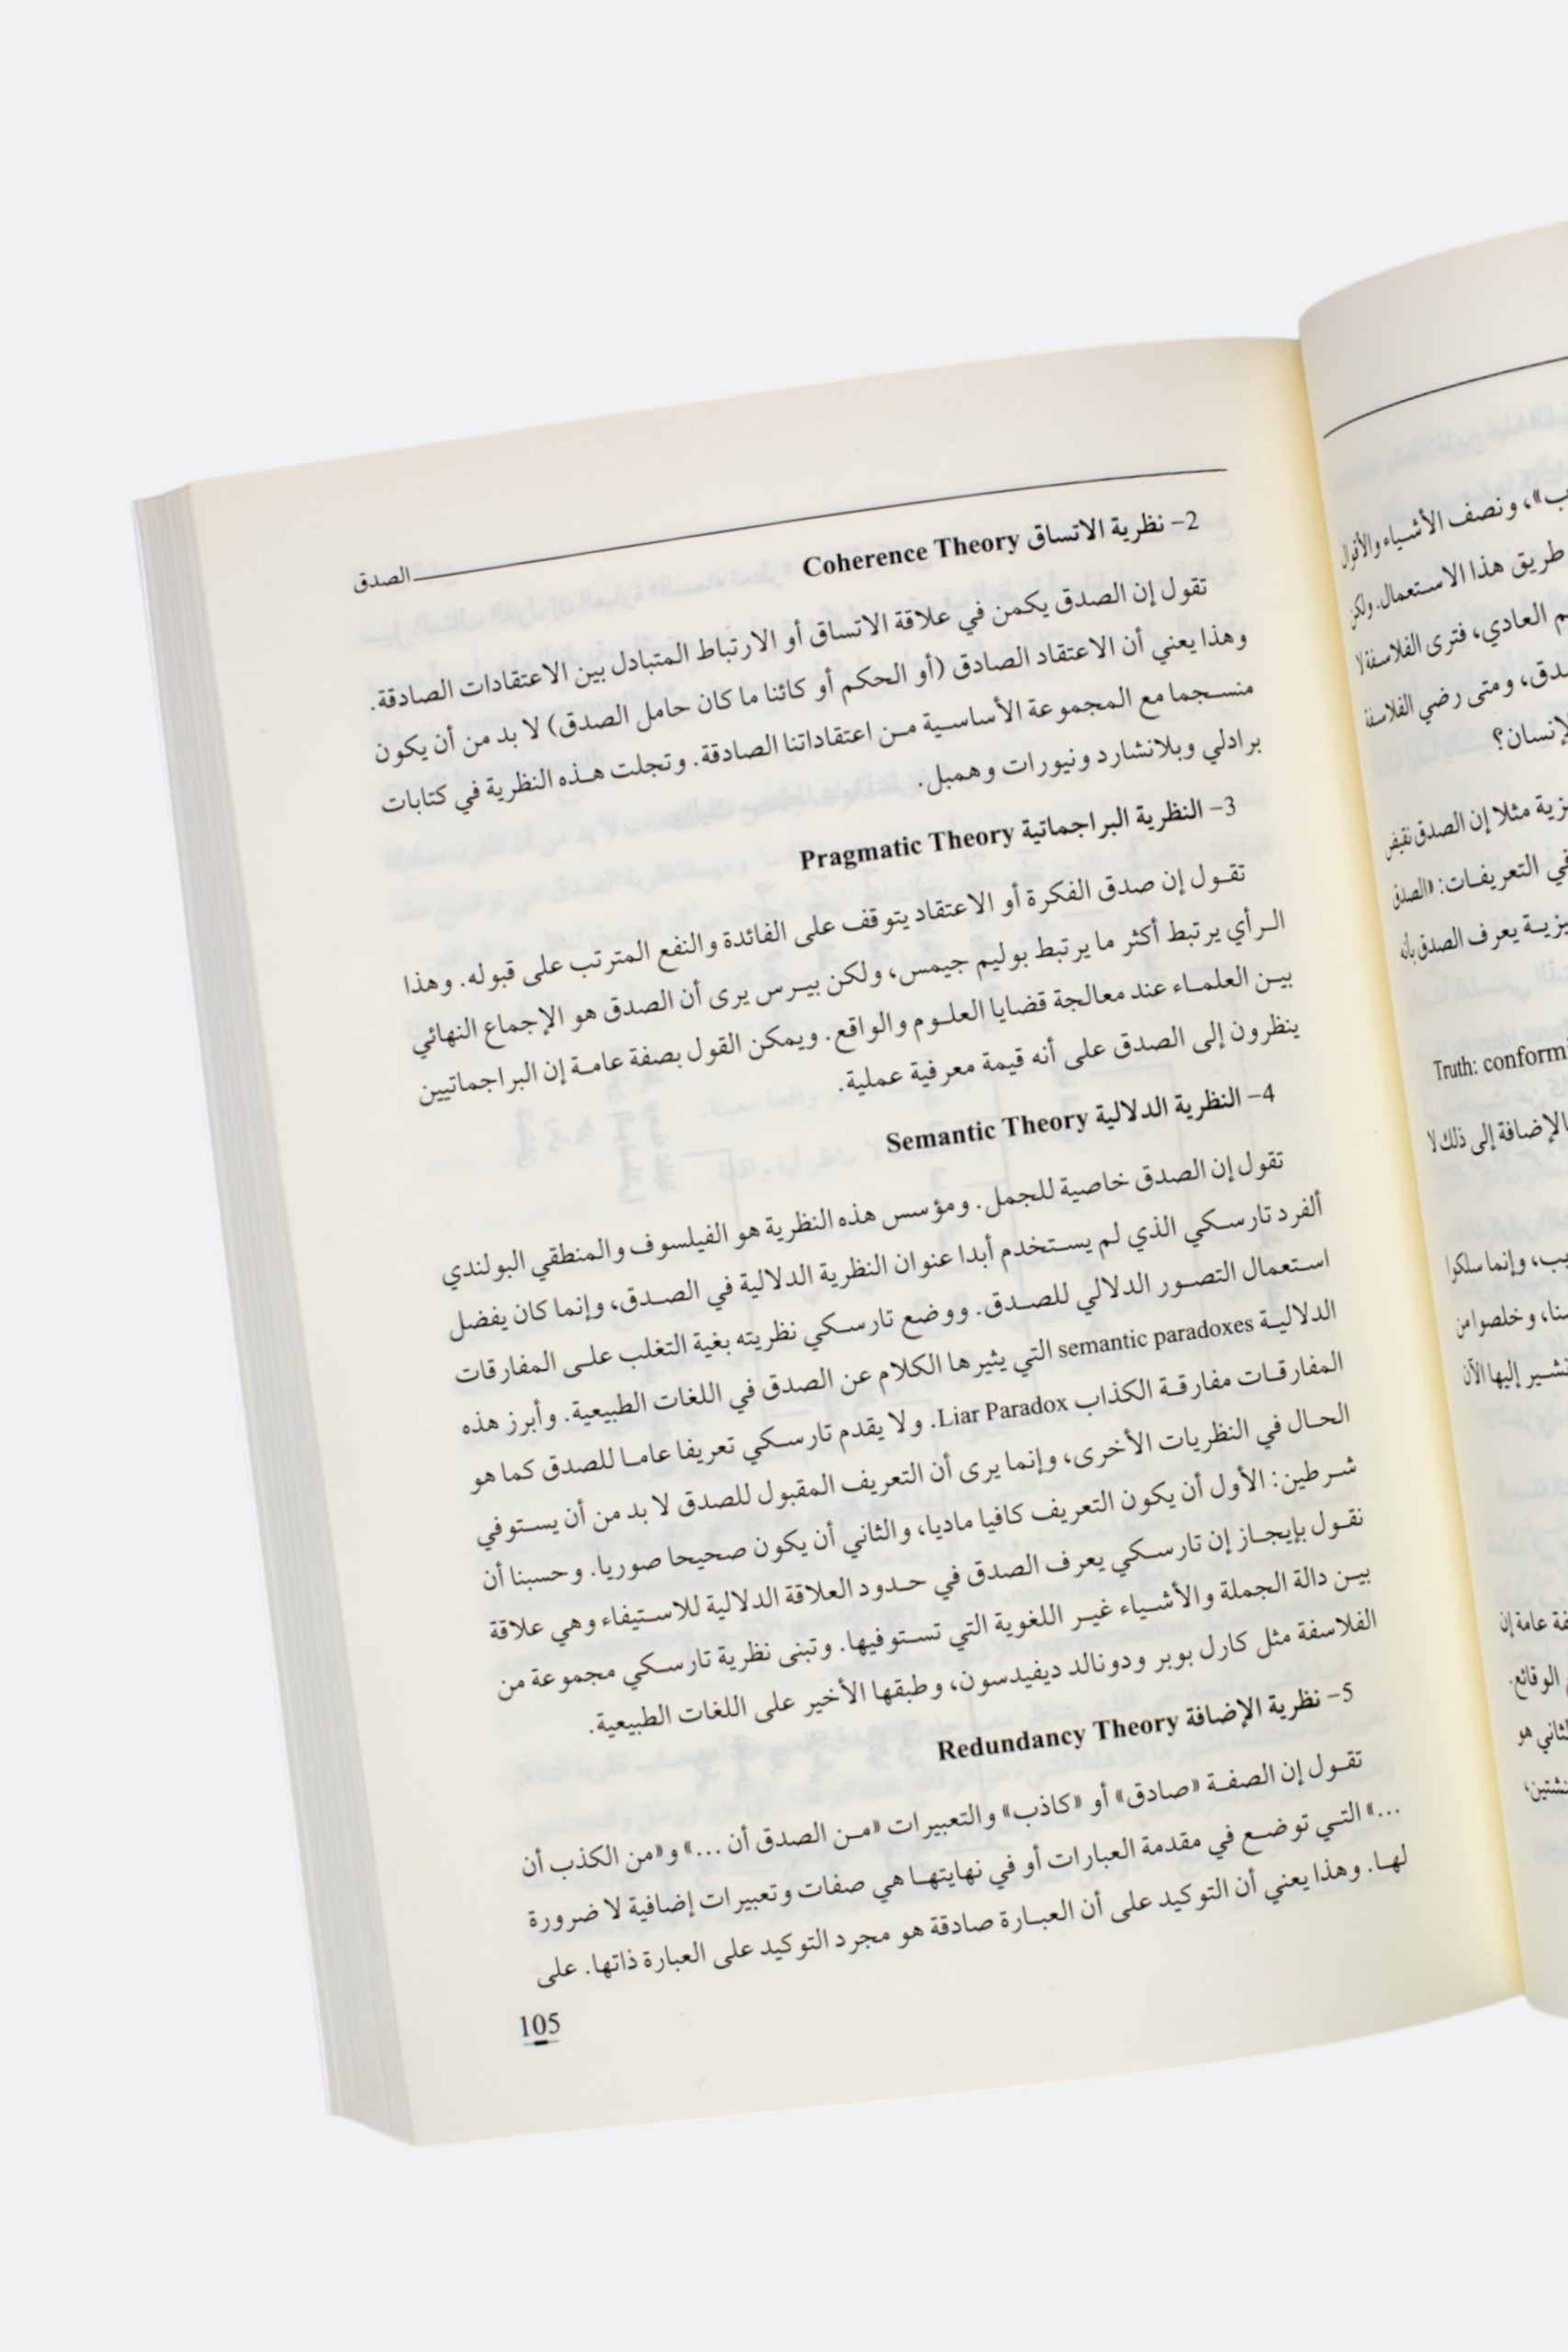 ب»، ونصف الأشياء والأقوال
طريق هذا الاستعمال. ولكن
م العادي، فترى الفلاسفة لا
دق، ومتى رضي الفلاسفة
لإنسان؟
يزية مثلا إن الصدق نقيض
في التعريفات: «الصدق
يزية يعرف الصدق بأنه
Truth: conformi
الإضافة إلى ذلك لا
يب، وإنما سلكوا
سنا، وخلصوا من
نشير إليها الآن
فة عامة إن
الوقائع.
لثاني هو
نشتين،
الصدق
2- نظرية الاتساق Coherence Theory
تقول إن الصدق يكمن في علاقة الاتساق أو الارتباط المتبادل بين الاعتقادات الصادقة.
وهذا يعني أن الاعتقاد الصادق (أو الحكم أو كائنا ما كان حامل الصدق) لا بد من أن يكون
منسجما مع المجموعة الأساسية من اعتقاداتنا الصادقة. وتجلت هذه النظرية في كتابات
برادلي وبلانشارد ونيورات وهمبل.
3- النظرية البراجماتية Pragmatic Theory
تقول إن صدق الفكرة أو الاعتقاد يتوقف على الفائدة والنفع المترتب على قبوله. وهذا
الرأي يرتبط أكثر ما يرتبط بوليم جيمس، ولكن بيرس يرى أن الصدق هو الإجماع النهائي
بين العلماء عند معالجة قضايا العلوم والواقع. ويمكن القول بصفة عامة إن البراجماتيين
ينظرون إلى الصدق على أنه قيمة معرفية عملية.
4- النظرية الدلالية Semantic Theory
تقول إن الصدق خاصية للجمل. ومؤسس هذه النظرية هو الفيلسوف والمنطقي البولندي
ألفرد تارسكي الذي لم يستخدم أبدا عنوان النظرية الدلالية في الصدق، وإنما كان يفضل
استعمال التصور الدلالي للصدق. ووضع تارسكي نظريته بغية التغلب على المفارقات
الدلالية semantic paradoxes التي يثيرها الكلام عن الصدق في اللغات الطبيعية. وأبرز هذه
المفارقات مفارقة الكذاب Liar Paradox. ولا يقدم تارسكي تعريفا عاما للصدق كما هو
الحال في النظريات الأخرى، وإنما يرى أن التعريف المقبول للصدق لا بد من أن يستوفي
شرطين: الأول أن يكون التعريف كافيا ماديا، والثاني أن يكون صحيحا صوريا. وحسبنا أن
نقول بإيجاز إن تارسكي يعرف الصدق في حدود العلاقة الدلالية للاستيفاء وهي علاقة
بين دالة الجملة والأشياء غير اللغوية التي تستوفيها. وتبنى نظرية تارسكي مجموعة من
الفلاسفة مثل كارل بوبر ودونالد ديفيدسون، وطبقها الأخير على اللغات الطبيعية.
5- نظرية الإضافة Redundancy Theory
تقول إن الصفة «صادق» أو «كاذب» والتعبيرات «من الصدق أن ...» و«من الكذب أن
...» التي توضع في مقدمة العبارات أو في نهايتها هي صفات وتعبيرات إضافية لا ضرورة
لها. وهذا يعني أن التوكيد على أن العبارة صادقة هو مجرد التوكيد على العبارة ذاتها. على
105